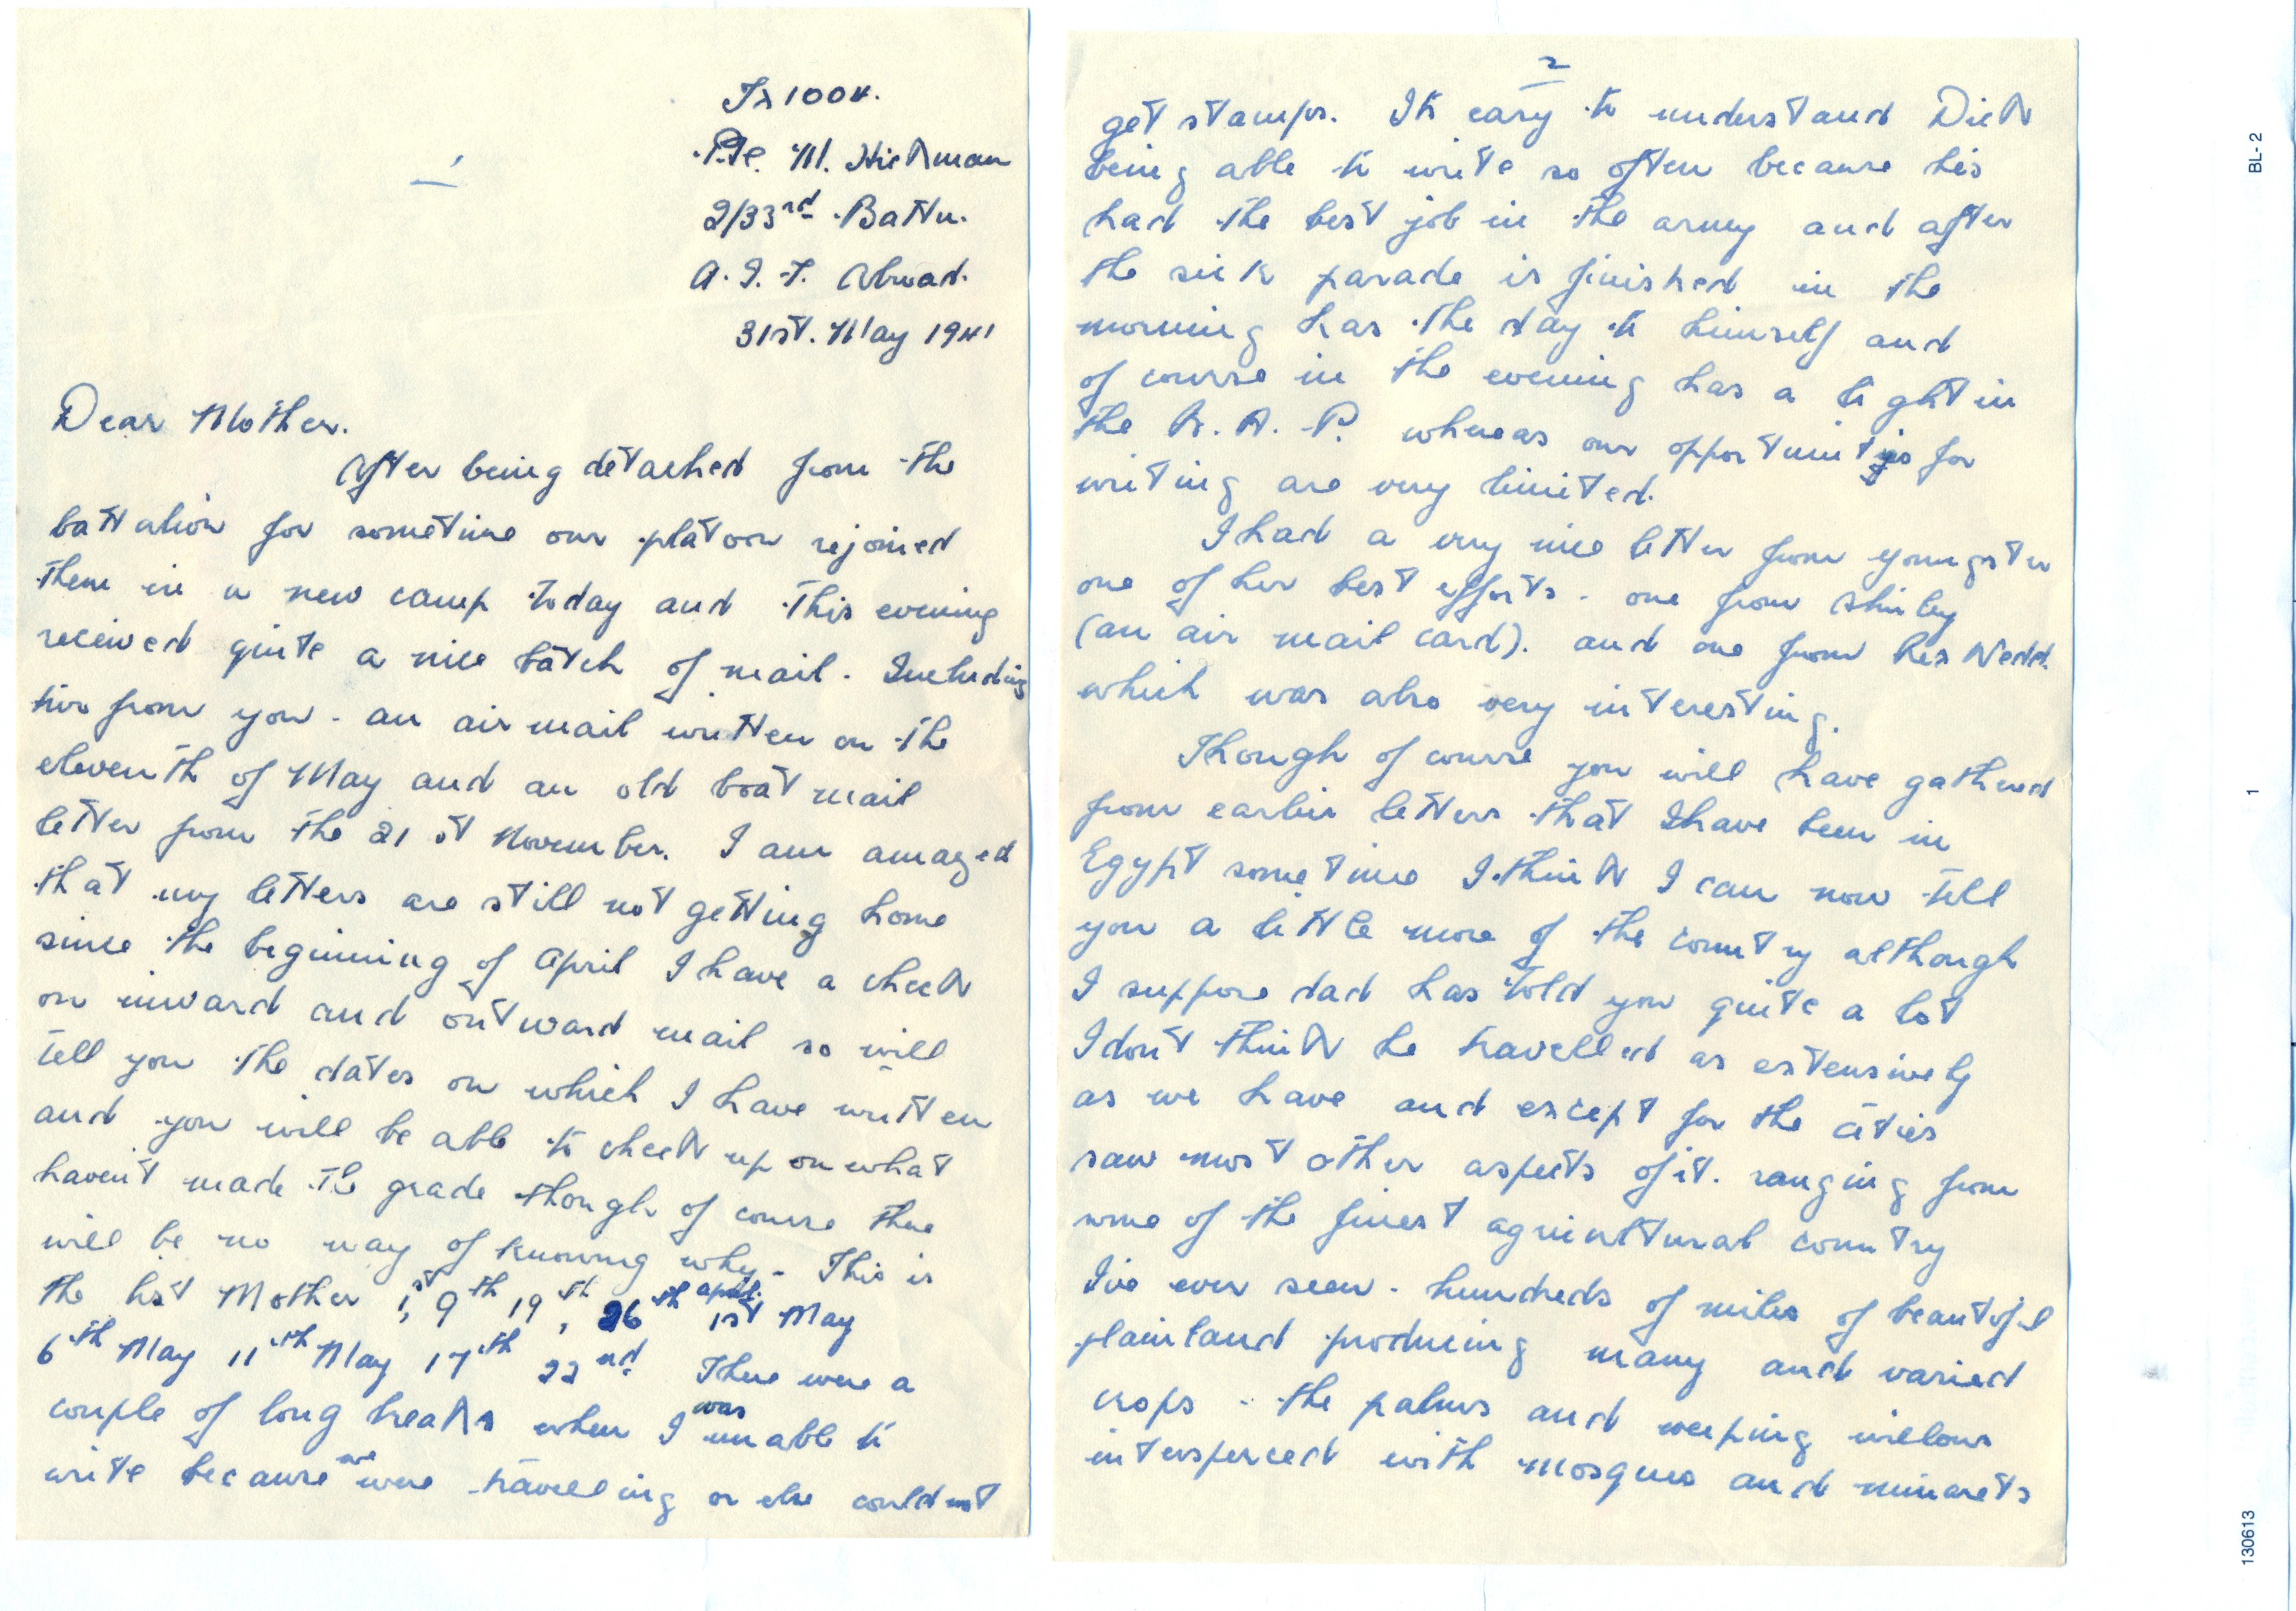 1
Tx 1004.
Pte. M. Hickman
2/33rd Battn.
A. I. F. Abroad.
31st. May 1941
Dear Mother.
After being detached from the
battalion for sometime our platoon rejoined
them in a new camp today and this evening
received quite a nice batch of mail. Including
two from you - an air mail written on the
eleventh of May and an old boat mail
letter from the 21 st November. I am amazed
that my letters are still not getting home
since the beginning of April I have a check
on inward and outward mail so will
tell you the dates on which I have written
and you will be able to check up on what
haven't made the grade though of course there
will be no way of knowing why - This is
the list Mother 1st, 9th 19th, 26th April. 1st May
6th May 11th May 17th 22nd. There were a
couple of long breaks when I was unable to
write because we were travelling or else could not
2
get stamps. Its easy to understand Dick
being able to write so often because his
had the best job in the army and after
the sick parade is finished in the
morning has the day to himself and
of course in the evening has a light in
the R. A. P. whereas our opportunitys for
writing are very limited.
I had a very nice letter from youngster
one of her best efforts - one from Shirley
(an air mail card). and one from Res Nedd.
which was also very interesting.
Though of course you will have gathered
from earlier letters that I have been in
Egypt sometime I think I can now tell
you a little more of the country although
I suppose dad has told you quite a lot
I don't think he travelled as extensively
as we have and except for the cities
saw most other aspects of it. ranging from
some of the finest agricultural country
I've ever seen - hundreds of miles of beautiful
plainland producing many and varied
crops - the palms and weeping willows
interperced with mosques and minarets
BL-2
1
130613